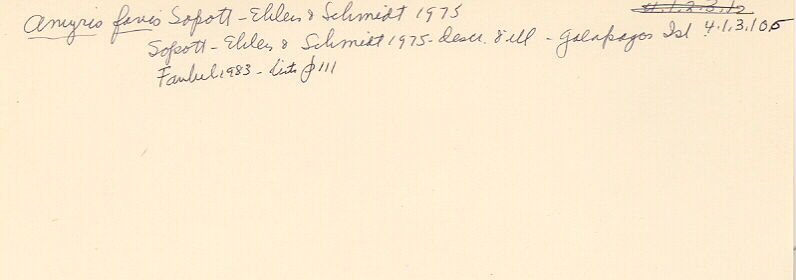 Amyris favis Sopott-Ehlers & Schmidt 1975
Sopott-Ehlers & Schmidt 1975- descr. & ill - Galapagos Isl 4.1.3.105
Faubel 1983 - lists p 111